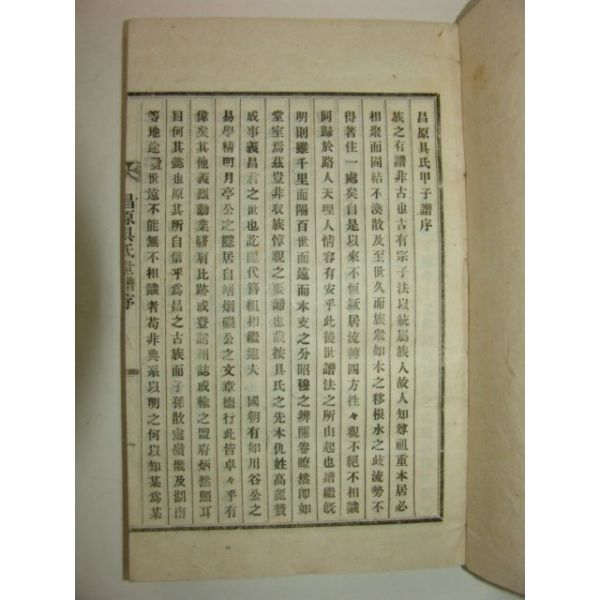 昌原具氏甲子譜序
族之有譜非古也古有宗子法以統屬族人故人知尊祖重本居必
相聚而固結不渙散及至世久而族衆如木之移根水之歧流勢不
得著住一處矣自是以來不恒厥居流轉四方往々親不絕不相識
同歸於路人天理人情容有安乎此後世譜法之所由起也譜繼旣
明則雖千里而隔百世而遠而本支之分昭穆之辨開卷瞭然卽如
堂室焉茲豈非収族惇親之要譜也哉按具氏之先本仇姓高麗贊
成事義昌君之世也訖麗代簪組相繼逮入 國朝有如川谷公之
易學精明月亭公之隱居自靖烟磯公之文章德行此皆卓々乎有
偉矣其他義烈動業騈肩比跡或登諸州誌或輪之盟府炳然照耳
目何其懿也原其所自信乎爲昌之古族而子孫散處嶺畿及湖南
等地途 世遠不能無不相識者苟非典系以明之何以知某爲某
昌原具氏世譜序